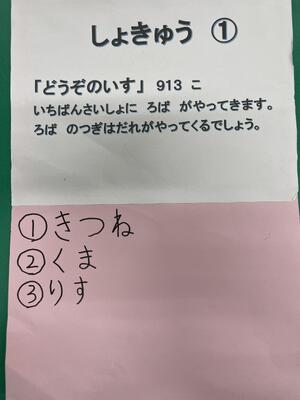 しょきゅう ①
「どうぞのいす」 913 こ
いちばんさいしょに ろば がやってきます。
ろば のつぎはだれがやってくるでしょう。
①きつね
②くま
③りす